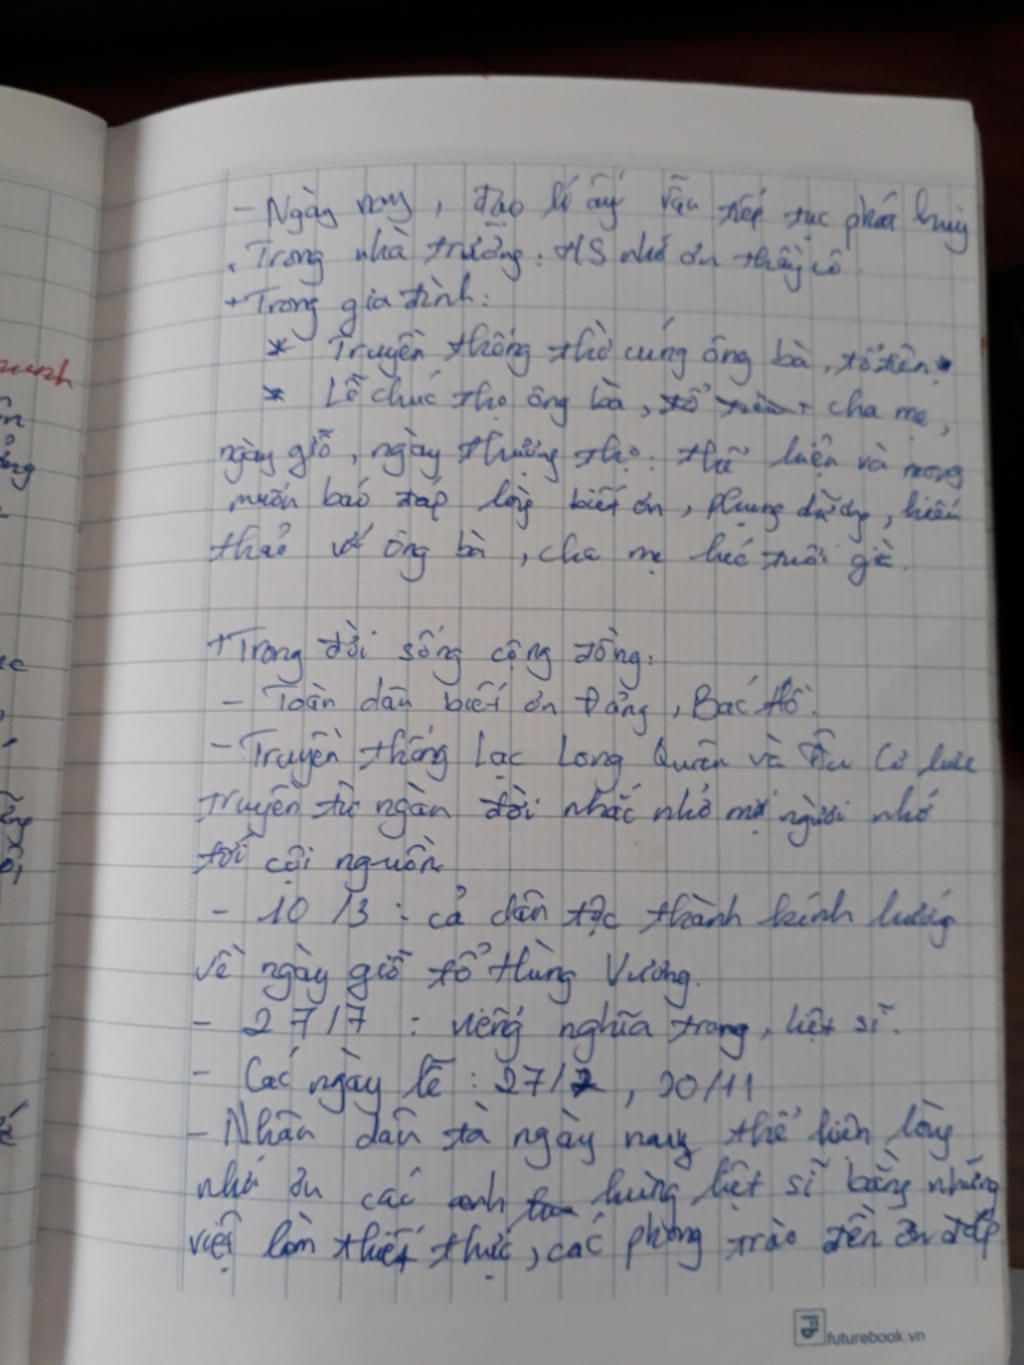 - Ngày nay, đạo lí ấy vẫn tiếp tục phát huy
. Trong nhà trường: HS nhớ ơn thầy cô
+ Trong gia đình:
* Truyền thống thờ cúng ông bà, tổ tiên.
* Lễ chúc thọ ông bà, cha mẹ,
ngày giỗ, ngày thượng thọ: thể hiện và mong
muốn báo đáp lòng biết ơn, phụng dưỡng, hiếu
thảo với ông bà, cha mẹ lúc tuổi già.
+ Trong đời sống cộng đồng:
- Toàn dân biết ơn Đảng, Bác Hồ.
- Truyền thống Lạc Long Quân và Âu Cơ lưu
truyền từ ngàn đời nhắc nhở mọi người nhớ
tới cội nguồn
- 10/3: cả dân tộc thành kính hướng
về ngày giỗ tổ Hùng Vương.
- 27/7: viếng nghĩa trang, liệt sĩ.
- Các ngày lễ: 27/2, 20/11
- Nhân dân ta ngày nay thể hiện lòng
nhớ ơn các anh hùng liệt sĩ bằng những
việc làm thiết thực, các phong trào đền ơn đáp
futurebook.vn